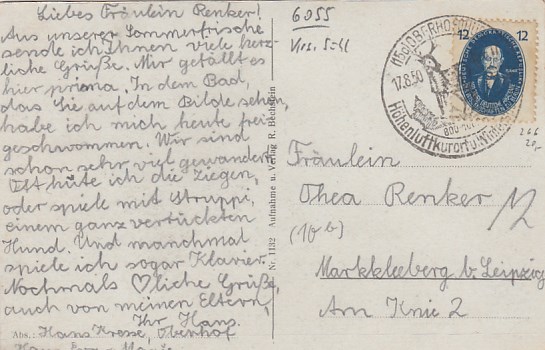 Liebes Fräulein Renker!
Aus unserer Sommerfrische
sende ich Ihnen viele herz-
liche Grüße. Mir gefällt es
hier prima. In dem Bad,
das Sie auf dem Bilde sehen,
habe ich mich heute frei-
geschwommen. Wir sind
schon sehr viel gewandert.
Oft hüte ich die Ziegen,
oder spiele mit Struppi,
einem ganz verrückten
Hund. Und manchmal
spiele ich sogar Klavier.
Nochmals ♡liche Grüße,
auch von meinen Eltern,
Ihr Hans.
Abs.: Hans Kresse, Oberhof
Nr. 1132 Aufnahme u. Verlag R. Bechstein
6055
17.8.50
Höhenluftkurort u. Winter
12 12
Fräulein
Thea Renker
(10b)
Markkleeberg b. Leipzig
Am Knie 2
12